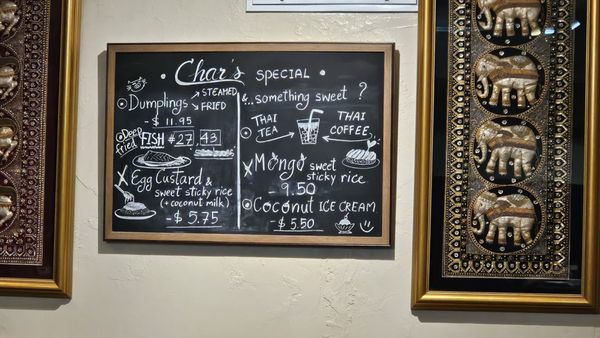 • Char's SPECIAL •
Dumplings → STEAMED
→ FRIED
- $ 11.95
Deep Fried FISH #27, 43
X Egg Custard &
sweet sticky rice
(+ coconut milk)
- $ 5.75
&..something sweet ?
THAI TEA THAI COFFEE
X Mongo sweet
sticky rice
9.50
Coconut ICE CREAM
- $ 5.50